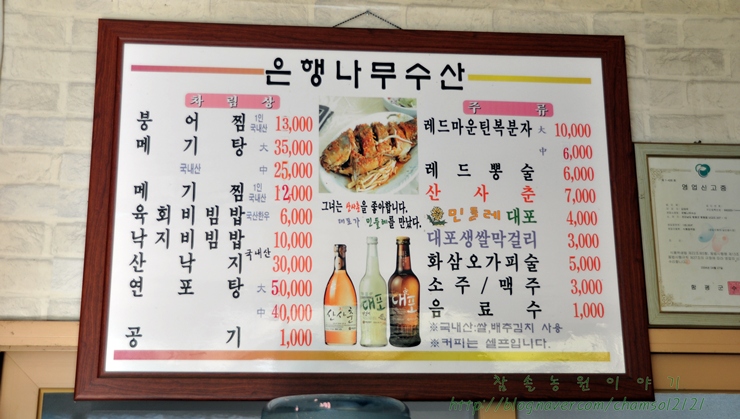 은행나무수산
차림상
붕어찜 1인 국내산 13,000
메기탕 대 35,000
국내산 중 25,000
메기찜 1인 국내산 12,000
육회비빔밥 국산한우 6,000
낙지비빔밥 10,000
산낙지 국내산 30,000
연포탕 대 50,000
중 40,000
공기 1,000
그녀는 산사춘을 좋아합니다.
대포가 민들레를 만났다.
산사춘
대포
대포
주류
레드마운틴복분자 大 10,000
中 6,000
레드뽕술 6,000
산사춘 7,000
민들레대포 4,000
대포생쌀막걸리 3,000
화삼오가피술 5,000
소주/맥주 3,000
음료수 1,000
※국내산:쌀,배추김치 사용
※커피는 셀프입니다.
영업신고증
함평군
참솔농원이야기
http://blog.naver.com/chamsol2121